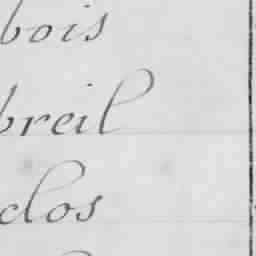 bois
breil
clos